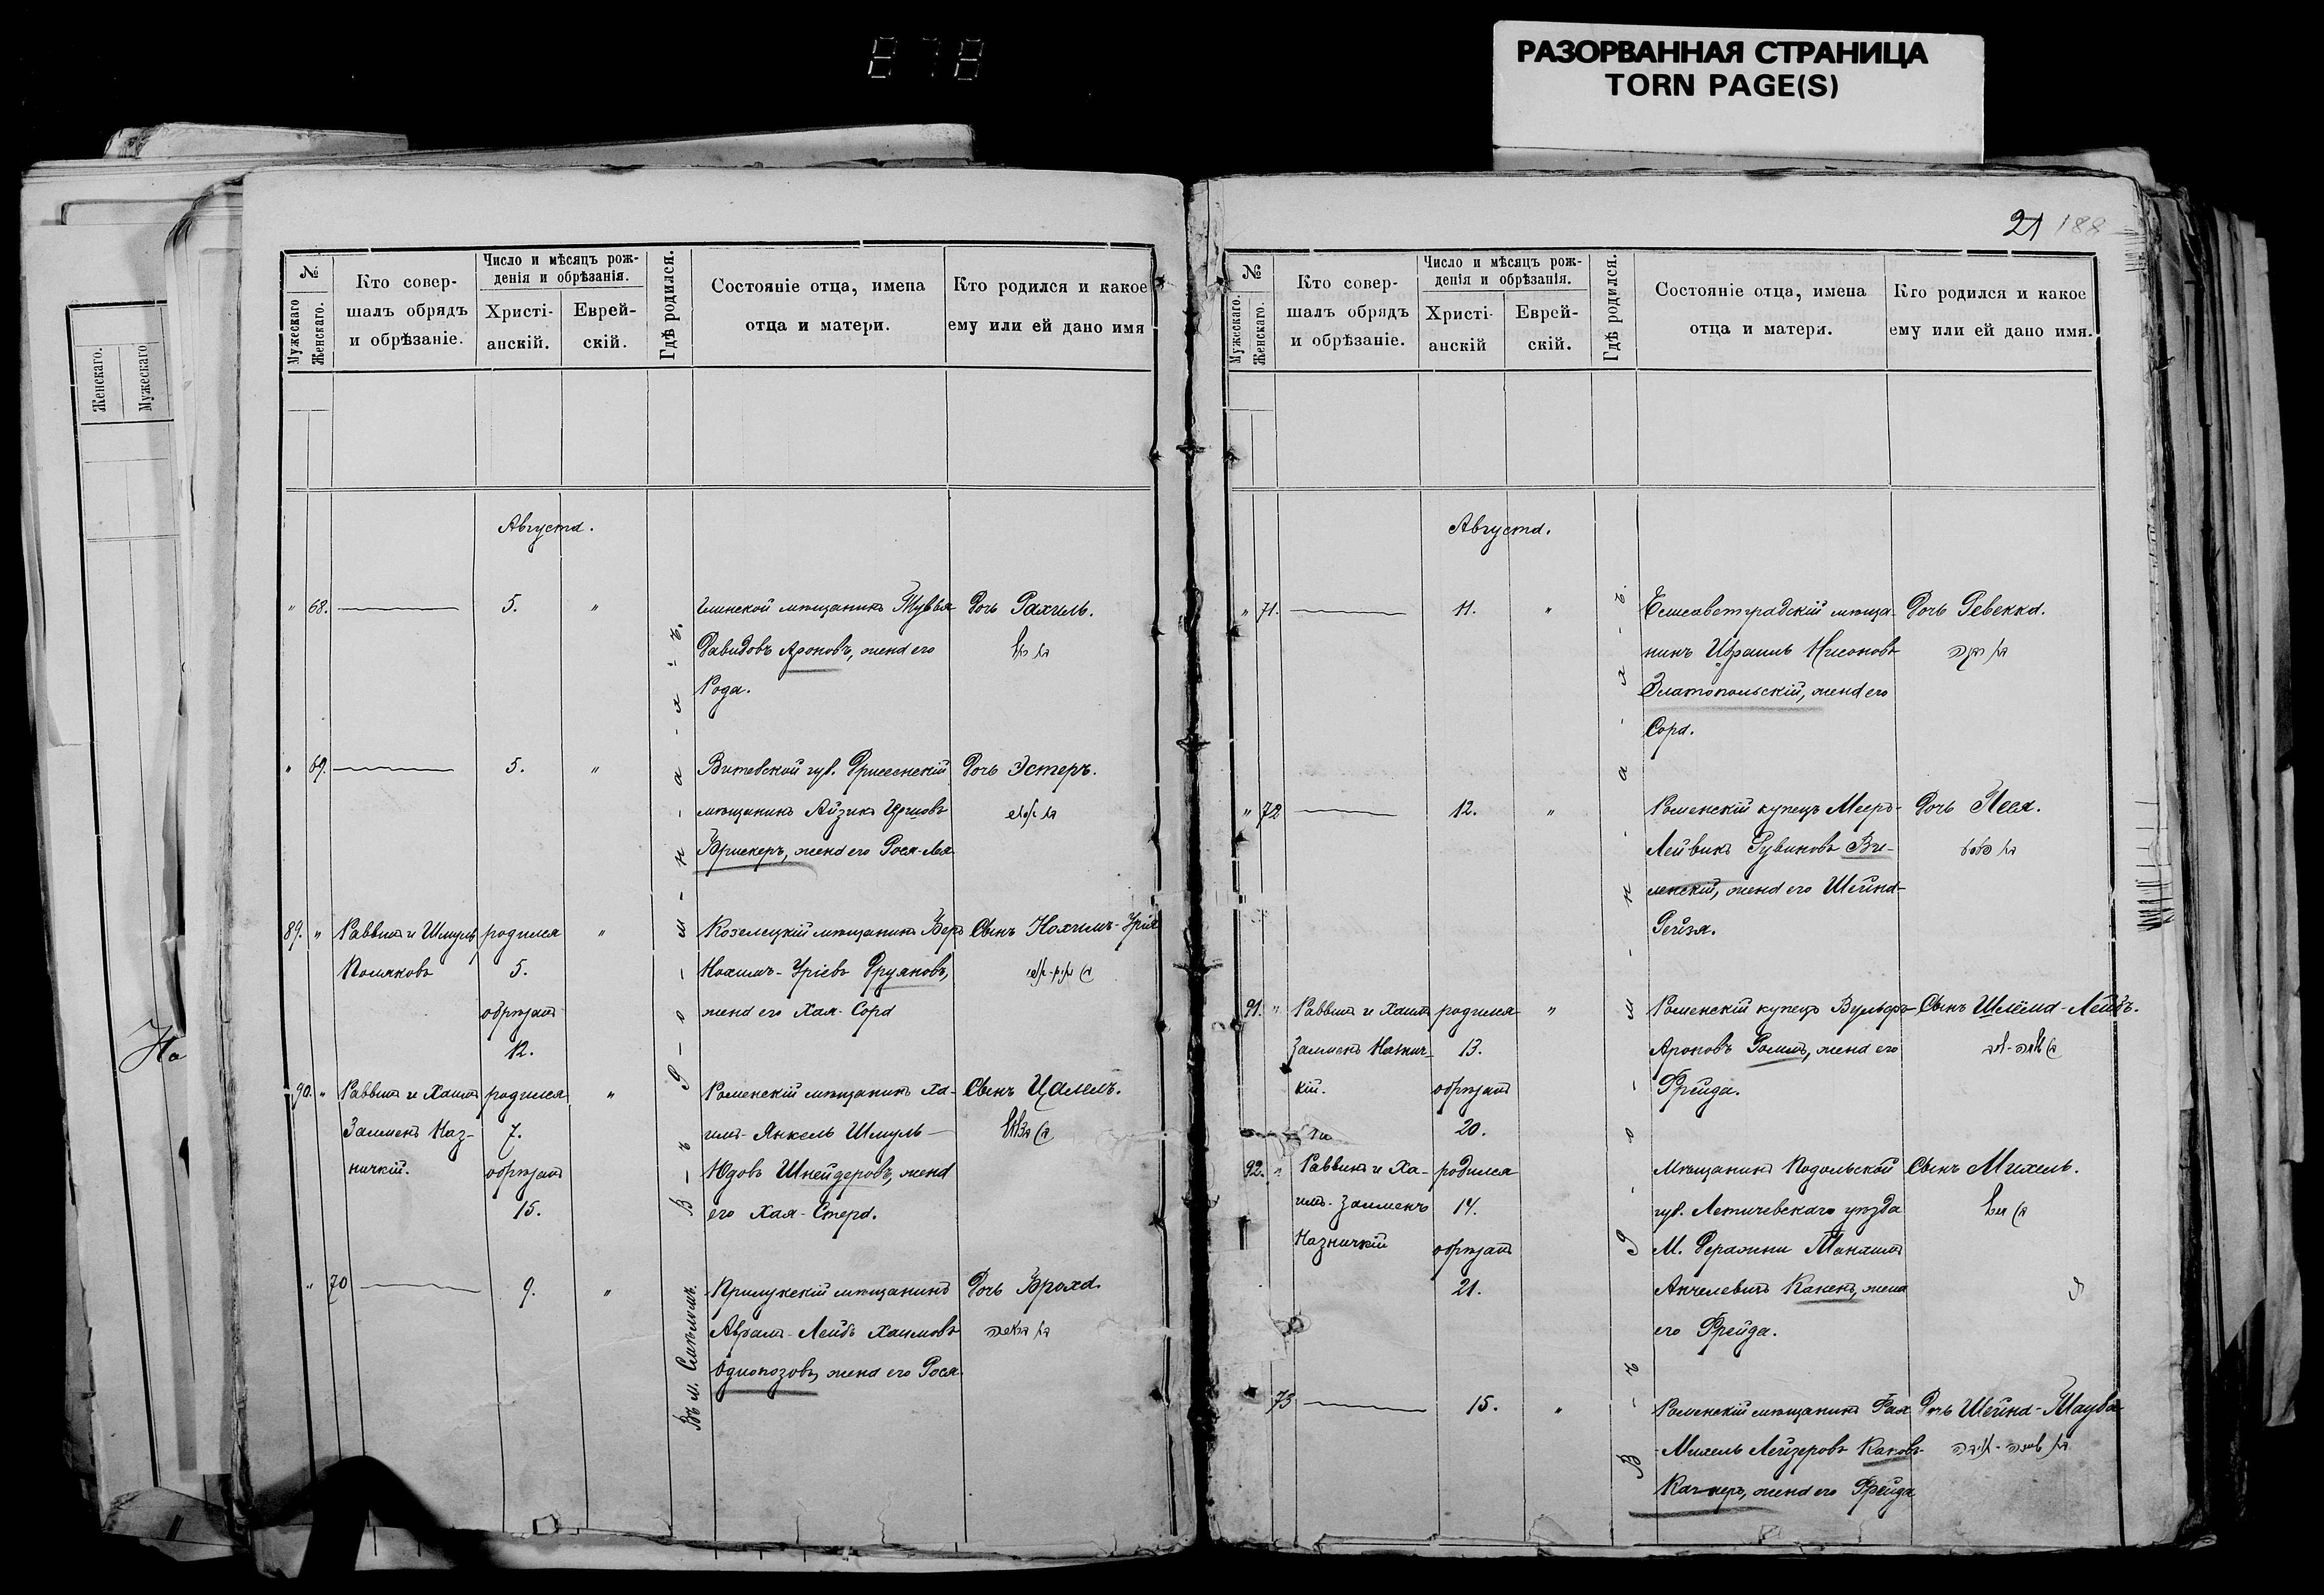 878
РАЗОРВАННАЯ СТРАНИЦА
TORN PAGE(S)
Женскаго.
Мужескаго
На
№
Мужескаго
Женскаго.
Кто совер-
шалъ обрядъ
и обрѣзаніе.
Число и мѣсяцъ рож-
денія и обрѣзанія.
Христі-
анскій.
Еврей-
скій.
Гдѣ родился.
Состояніе отца, имена
отца и матери.
Кто родился и какое
ему или ей дано имя
Августа.
" 68. 5. "
Глинской мѣщанинъ Тувья
Давидовъ Ароновъ, жена его
Рода.
Дочь Рахиль.
בת רחל
" 69. 5. "
Витебской губ. Дрисенскій
мѣщанинъ Айзикъ
Брискеръ, жена его Рося-Лея
Дочь Эстеръ.
בת אסתר
89. " Раввинъ и Шмуль
Поляковъ
родился "
5.
обрѣзанъ
12.
Козелецкій мѣщанинъ Беръ
Нохимъ-Уріевъ Друяновъ,
жена его Хая-Сора
Сынъ Нохимъ-Урія
90. " Раввинъ и Хаимъ
Залменъ Наз-
ничкій.
родился "
7.
обрѣзанъ
15.
Роменскій мѣщанинъ Ха-
имъ-Янкель Шмуль-
Юдовъ Шнейдеровъ, жена
его Хая-Стера.
Сынъ Цалелъ.
" 70 9. "
Прилукскій мѣщанинъ
Абрамъ-Лейбъ Хаимовъ
Однопозовъ, жена его Рося.
Дочь Броха.
בת בראכה
Въ м. Смѣломъ.
В - ъ Р - о - м - н - а - х - ъ.
21 188
№
Мужескаго.
Женскаго.
Кто совер-
шалъ обрядъ
и обрѣзаніе.
Число и мѣсяцъ рож-
денія и обрѣзанія.
Христі-
анскій
Еврей-
скій.
Гдѣ родился.
Состояніе отца, имена
отца и матери.
Кто родился и какое
ему или ей дано имя.
Августа.
" 71. 11. "
Елисаветградскій мѣща-
нинъ Израиль Нисоновъ
Златопольскій, жена его
Сора.
Дочь Ревекка.
בת רבקה
" 72 12. "
Роменскій купецъ Мееръ-
Лейвикъ Рувиновъ Ви-
ленскій, жена его Шейна-
Рейзя.
Дочь Песя.
91. " Раввинъ и Хаимъ
Залменъ Назнич-
кій.
родился "
13.
обрѣзанъ
20.
Роменскій купецъ Вульфъ
Ароновъ Роминъ, жена его
Фрейда.
Сынъ Шлёма-Лейбъ.
92. " Раввинъ и Ха-
имъ-Залменъ
Назничкій
родился
14.
обрѣзанъ
21.
Мѣщанинъ Подольской
губ. Летичевскаго уѣзда
М. Деражни Манашъ
Анчелевичъ Каненъ, жена
его Фрейда.
Сынъ Михель.
73 15. "
Роменскій мѣщанинъ Рая
Михель Лейзеровъ
жена его Фрейда
Дочь Шейна-Тауба
В - ъ Р - о - м - н - а - х - ъ.